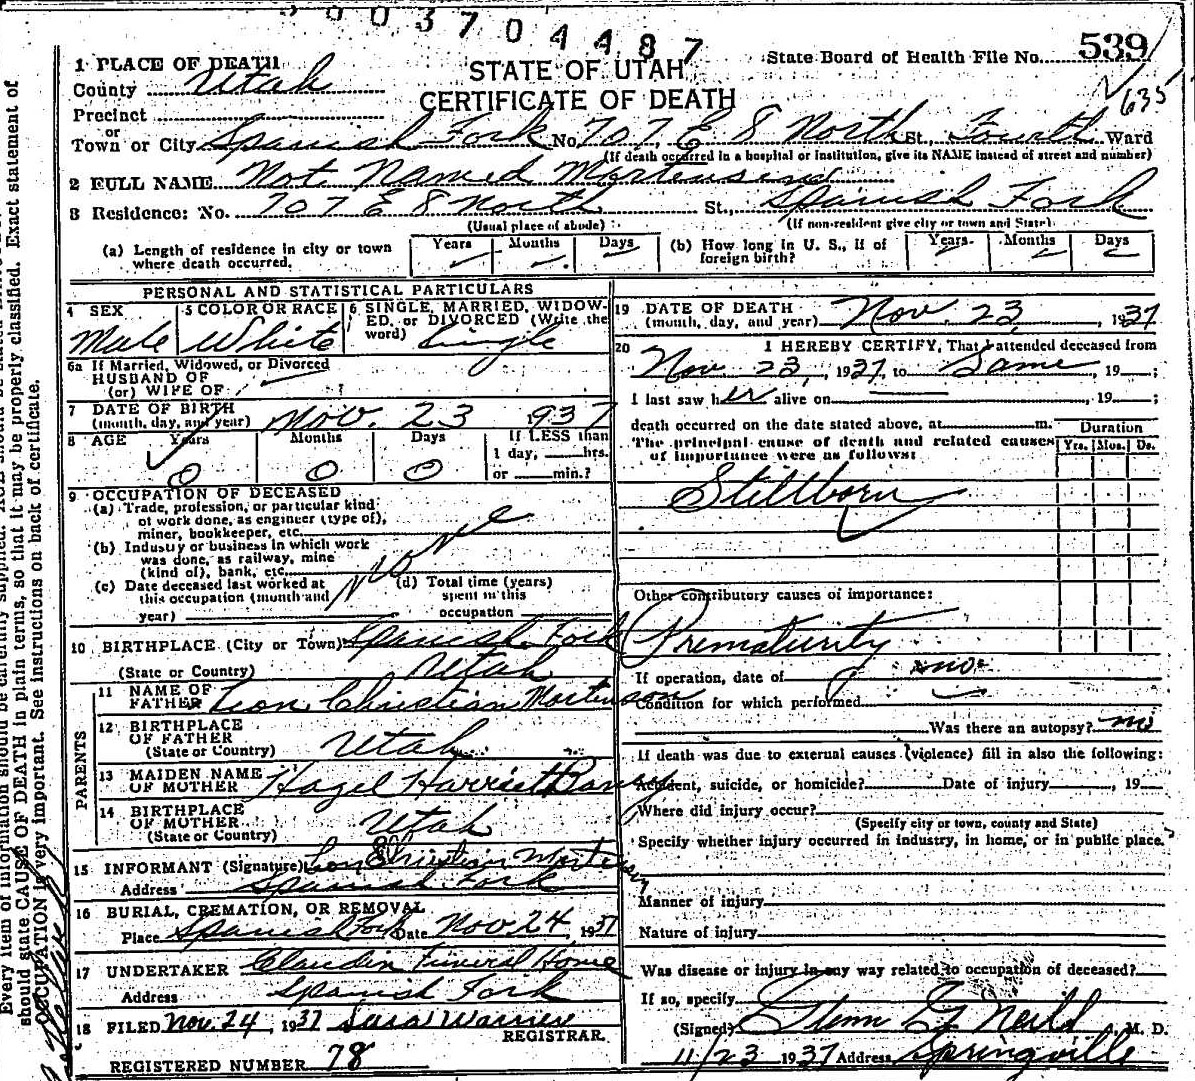 0 0 3 7 0 4 4 8 7
State Board of Health File No. 539
635
STATE OF UTAH
CERTIFICATE OF DEATH
1 PLACE OF DEATH
County Utah
Precinct
or
Town or City Spanish Fork No. 707 E 8 North St., Fourth Ward
(If death occurred in a hospital or institution, give its NAME instead of street and number)
2 FULL NAME Not Named
3 Residence: No. 707 E 8 North St., Spanish Fork
(Usual place of abode) (If non-resident give city or town and State)
(a) Length of residence in city or town where death occurred. Years Months Days
(b) How long in U. S., if of foreign birth? Years Months Days
PERSONAL AND STATISTICAL PARTICULARS
4 SEX Male
5 COLOR OR RACE White
6 SINGLE, MARRIED, WIDOWED, or DIVORCED (Write the word) Single
6a If Married, Widowed, or Divorced
HUSBAND OF
(or) WIFE OF
7 DATE OF BIRTH
(month, day, and year) Nov. 23 1937
8 AGE Years Months Days If LESS than
0 0 0 1 day, hrs.
or min.?
9 OCCUPATION OF DECEASED
(a) Trade, profession, or particular kind
of work done, as engineer (type of),
miner, bookkeeper, etc.
(b) Industry or business in which work
was done, as railway, mine
(kind of), bank, etc.
None
(c) Date deceased last worked at
this occupation (month and
year)
(d) Total time (years)
spent in this
occupation
10 BIRTHPLACE (City or Town) Spanish Fork
(State or Country) Utah
PARENTS
11 NAME OF
FATHER Leon Christian Mortenson
12 BIRTHPLACE
OF FATHER
(State or Country) Utah
13 MAIDEN NAME
OF MOTHER Hazel Harriet
14 BIRTHPLACE
OF MOTHER
(State or Country) Utah
15 INFORMANT (Signature) Leon Christian
Address Spanish Fork
16 BURIAL, CREMATION, OR REMOVAL
Place Spanish Fork Date Nov 24, 1937
17 UNDERTAKER Claudin Funeral Home
Address Spanish Fork
18 FILED Nov. 24, 1937 Sara Warner
REGISTRAR.
REGISTERED NUMBER 78
19 DATE OF DEATH
(month, day, and year) Nov. 23, 1937
20 I HEREBY CERTIFY, That I attended deceased from
Nov 23, 1937, to Same, 19 ;
I last saw h er alive on , 19 ;
death occurred on the date stated above, at m.
The principal cause of death and related causes
of importance were as follows:
Duration
Yrs. Mos. Ds.
Stillborn
Other contributory causes of importance:
Prematurity
If operation, date of no
Condition for which performed
Was there an autopsy? no
If death was due to external causes (violence) fill in also the following:
Accident, suicide, or homicide? Date of injury , 19
Where did injury occur?
(Specify city or town, county and State)
Specify whether injury occurred in industry, in home, or in public place.
Manner of injury
Nature of injury
Was disease or injury in any way related to occupation of deceased?
If so, specify
(Signed) Glenn M. D.
11/23 1937 Address Springville
Every item of information should be carefully supplied.
should state CAUSE OF DEATH in plain terms, so that it may be properly classified. Exact statement of
OCCUPATION is very important. See instructions on back of certificate.